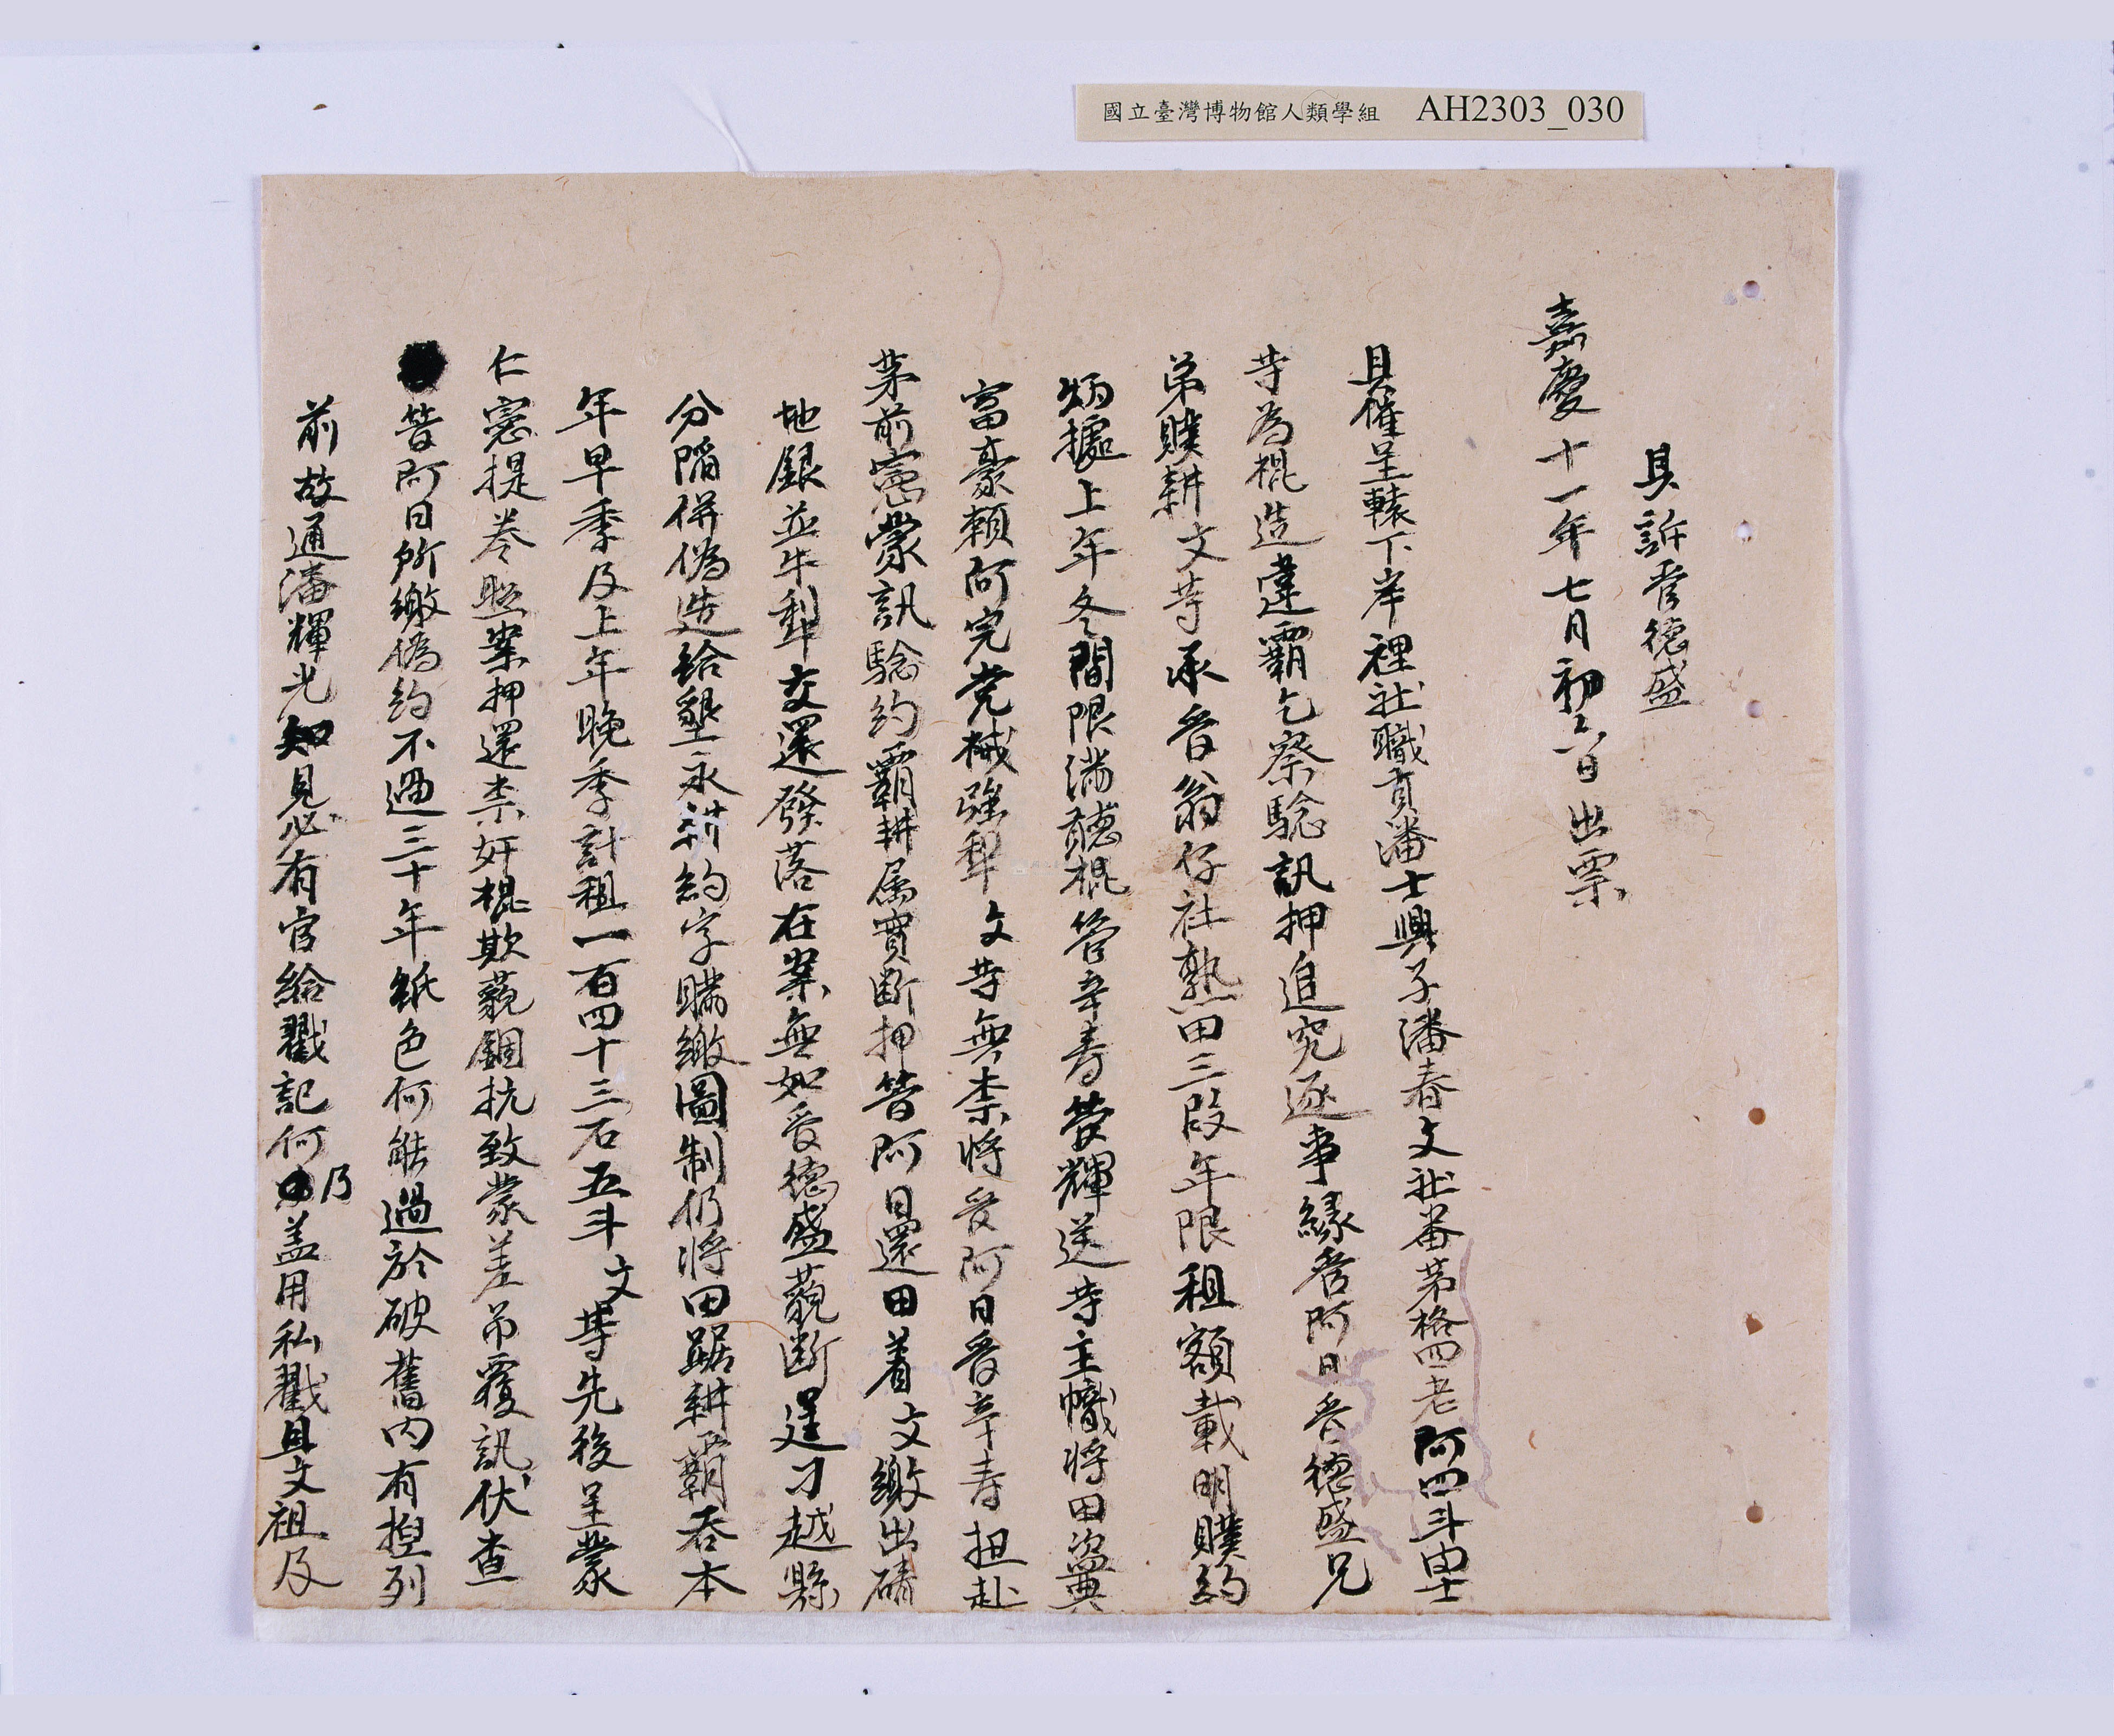 國立臺灣博物館人類學組 AH2303_030
具訴 德盛
嘉慶十一年七月初 日出票
具催呈轅下岸裡社職員潘士興子潘春文社番茅格四老阿四斗 士
等為棍造違霸乞察驗訊押追究逐事緣 阿日 德盛兄
弟贌耕文等承 翁仔社熟田三段年限租額載明贌約
炳據上年冬間限滿聽棍管辛壽 輝送等主幟將田盜
富豪賴阿完党械强犁文等無柰將 阿日 辛壽担赴
茅前憲蒙訊驗約霸耕属實断押 阿日還田着文繳出磧
地銀並牛犁交還發落在案無如 德盛藐断逞刁越縣
分陷併偽造給墾永耕約字瞞繳圖制仍將田踞耕霸吞本
年早季及上年晚季計租一百四十三石五斗文等先後呈蒙
仁憲提卷照案押還柰奸棍欺藐錮抗致蒙差吊覆訊伏查
阿日所繳偽約不過三十年紙色何能過於破舊內有揑列
前故通潘輝光知見必有官給戳記何乃盖用私戳且文祖及